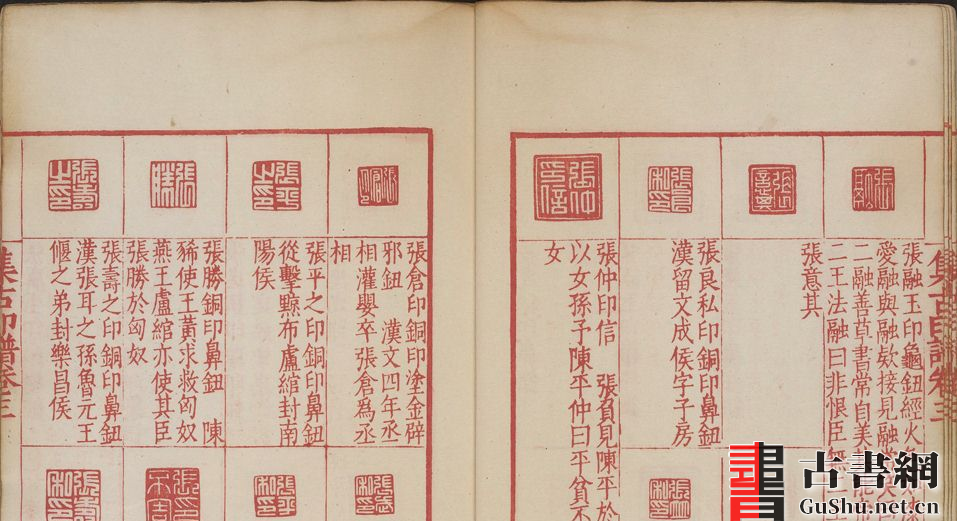 集古印譜卷三
張融
張融玉印龜鈕經火
愛融與融欵接見融常笑曰
二融善草書常自美其能
二王法融曰非恨臣無二
張意其
張良私印
張良私印銅印鼻鈕
漢留文成侯字子房
張仲印信
張仲印信 張負見陳平於
以女孫子陳平仲曰平貧不
女
張倉印
張倉印銅印塗金辟
邪鈕 漢文四年丞
相灌嬰卒張倉爲丞
相
張平之印
張平之印銅印鼻鈕
從擊黥布盧綰封南
陽侯
張勝
張勝銅印鼻鈕 陳
豨使王黃求救匈奴
燕王盧綰亦使其臣
張勝於匈奴
張壽之印
張壽之印銅印鼻鈕
漢張耳之孫魯元王
偃之弟封樂昌侯
集古印譜卷三
古書網
GuShu.net.cn